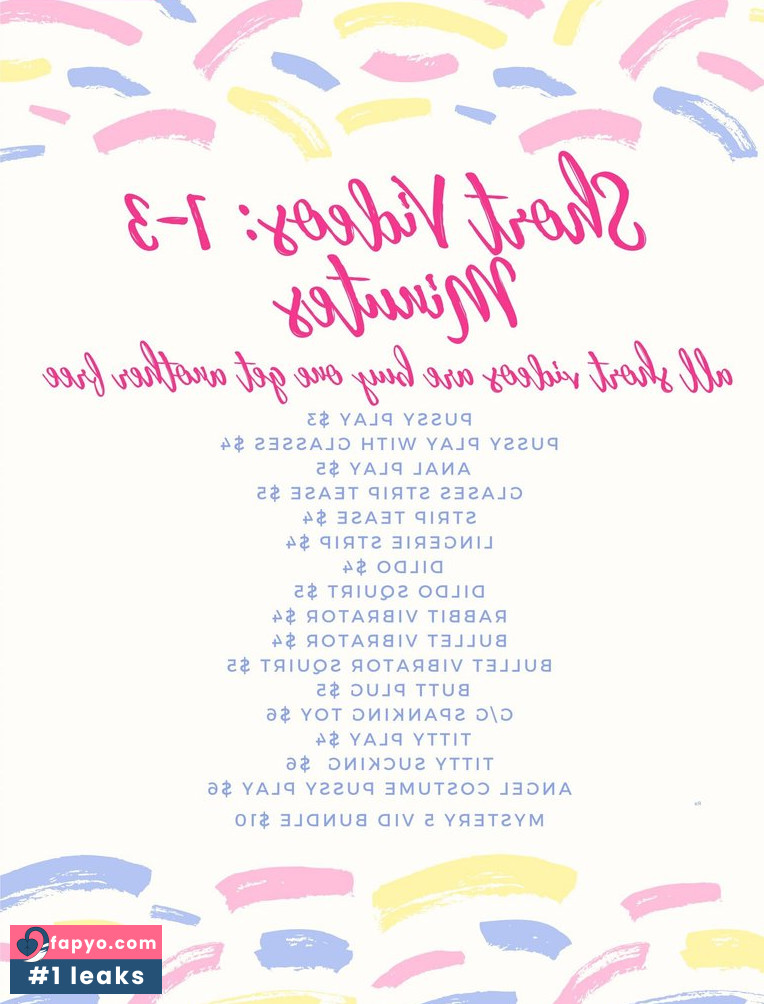 Short Videos: 1-3
Minutes
all short videos are buy one get another free
PUSSY PLAY $3
PUSSY PLAY WITH GLASSES $4
ANAL PLAY $5
GLASES STRIP TEASE $5
STRIP TEASE $4
LINGERIE STRIP $4
DILDO $4
DILDO SQUIRT $5
RABBIT VIBRATOR $4
BULLET VIBRATOR $4
BULLET VIBRATOR SQUIRT $5
BUTT PLUG $5
G/G SPANKING TOY $6
TITTY PLAY $4
TITTY SUCKING $6
ANGEL COSTUME PUSSY PLAY $6
MYSTERY 5 VID BUNDLE $10
fapyo.com
#1 leaks